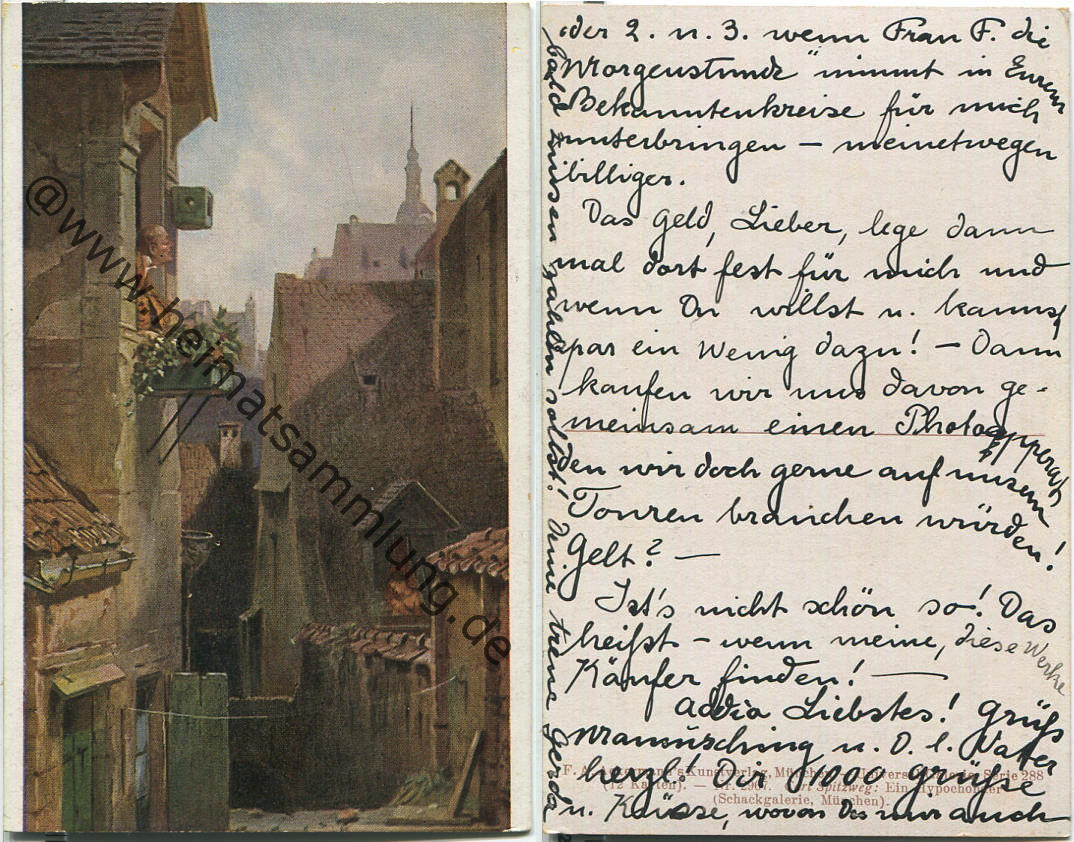 @www.heimatsammlung.de
oder 2. u. 3. wenn Frau F. die
"Morgenstunde" nimmt in Eurem
Bekanntenkreise für mich
unterbringen – meinetwegen
billiger.
Das Geld, Lieber, lege dann
mal dort fest für mich und
wenn Du willst u. kannst
spar ein wenig dazu! – Dann
kaufen wir uns davon ge-
meinsam einen Photoapperat
den wir doch gerne auf unsern
Touren brauchen würden!
Gelt? –
Ist's nicht schön so! Das
heißt – wenn meine, diese Werke
Käufer finden! –
Addio Liebstes! Grüß
u. D. l. Vater
herzl.! Dir 1000 grüße
u. Küsse, wovon Du mir auch
bald zahlen sollst! Deine treue Gerda
F. A. Ackermann's Kunstverlag, München. Universal-Galerie, Serie 288
(12 Karten). — Nr. 2967. Carl Spitzweg: Ein Hypochonder
(Schackgalerie, München).